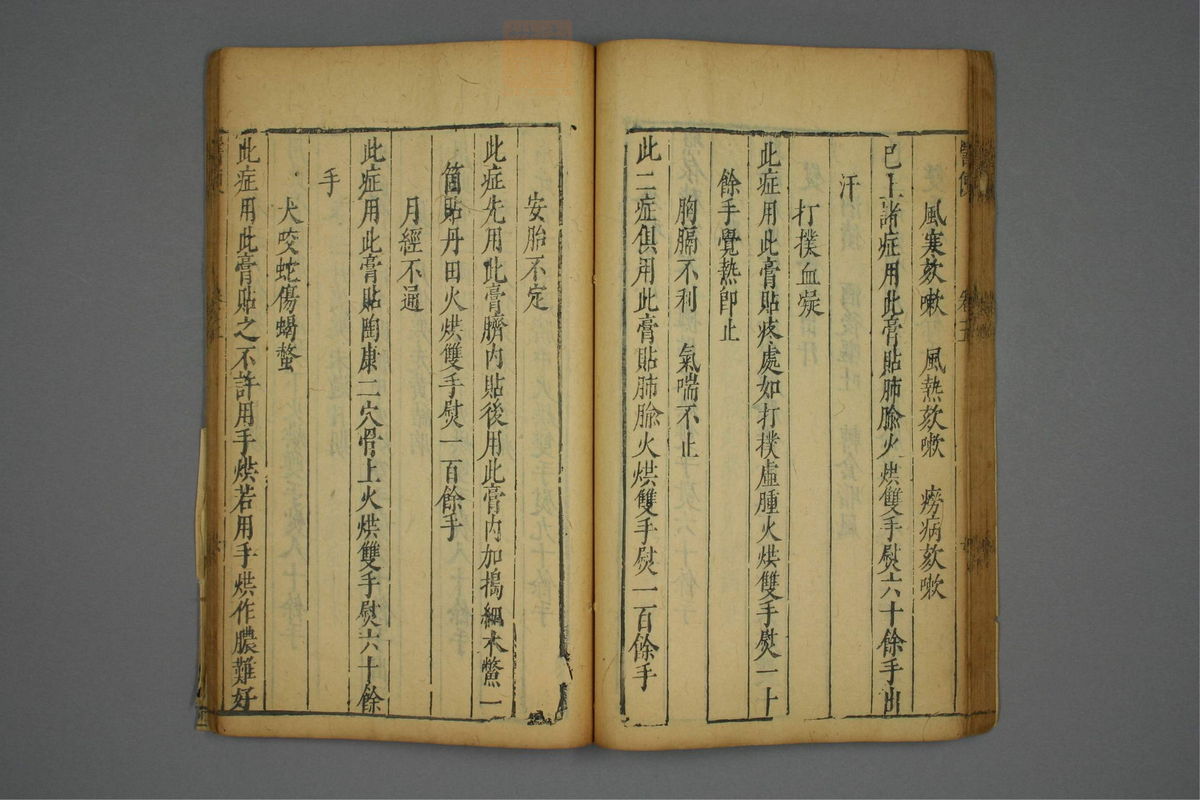 風寒欬嗽　風熱欬嗽　癆病欬嗽
已上諸症用此膏貼肺腧火烘雙手熨六十餘手出
汗
打撲血凝
此症用此膏貼疼處如打撲虛腫火烘雙手熨一十
餘手覺熱卽止
胸膈不利　氣喘不止
此二症俱用此膏貼肺腧火烘雙手熨一百餘手
安胎不定
此症先用此膏臍內貼後用此膏內加搗細木鱉一
箇貼丹田火烘雙手熨一百餘手
月經不通
此症用此膏貼陶康二穴骨上火烘雙手熨六十餘
手
犬咬蛇傷蝎螫
此症用此膏貼之不許用手烘若用手烘作膿難好